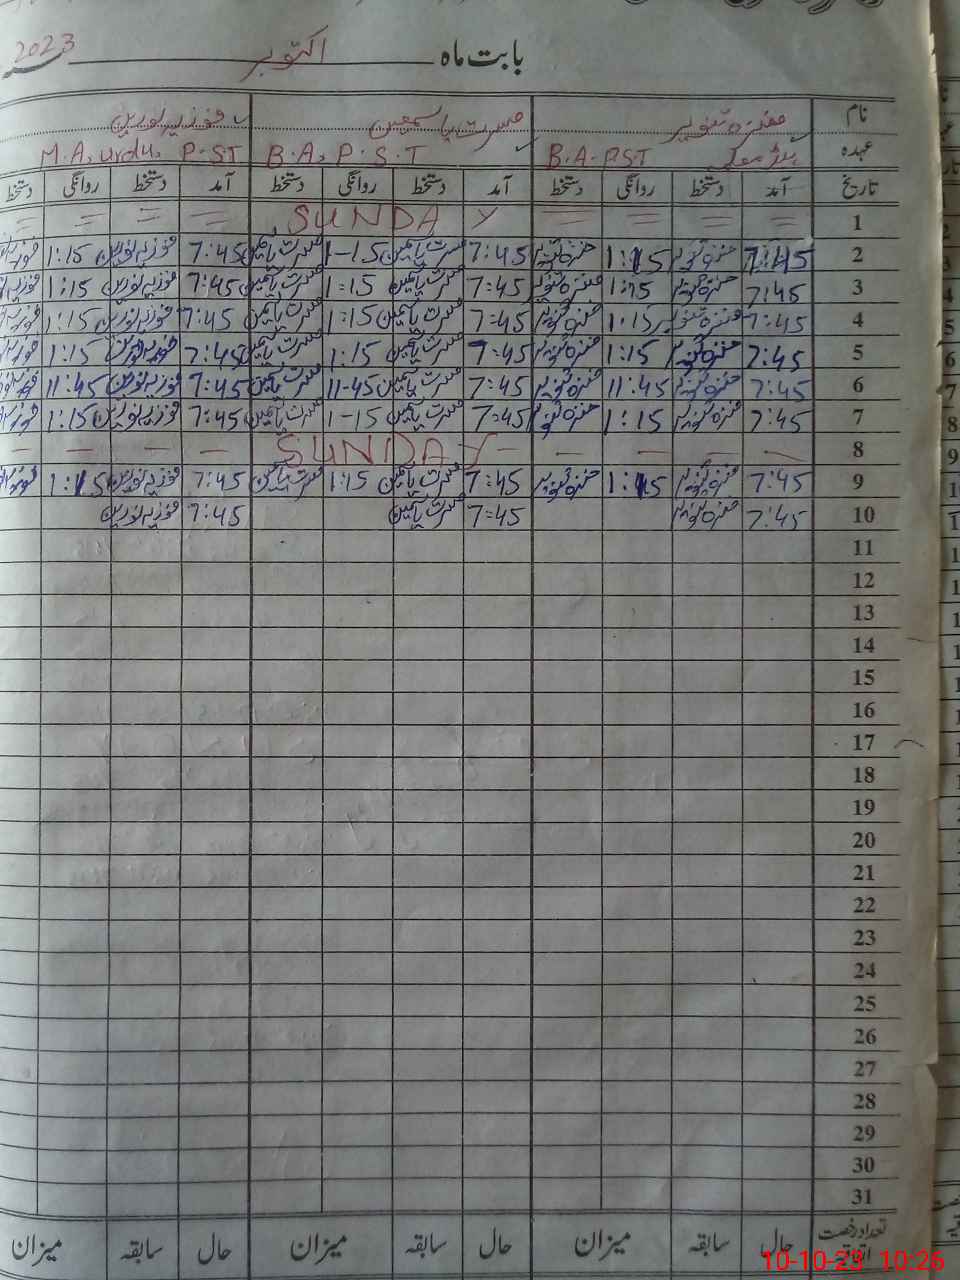 بابت ماہ اکتوبر 2023
نام منزہ تنویر مسرت یاسمین فوزیہ نورین
عہدہ B.A. P.S.T B.A. P.S.T M.A. urdu. P.ST
تاریخ آمد دستخط روانگی دستخط آمد دستخط روانگی دستخط آمد دستخط روانگی دستخط
1 SUNDAY
2 7:45 منزہ تنویر 1:15 منزہ تنویر 7:45 مسرت یاسمین 1-15 مسرت یاسمین 7:45 فوزیہ نورین 1:15
3 7:45 منزہ تنویر 1:15 منزہ تنویر 7:45 مسرت یاسمین 1:15 مسرت یاسمین 7:45 فوزیہ نورین 1:15
4 7:45 منزہ تنویر 1:15 منزہ تنویر 7:45 مسرت یاسمین 1:15 مسرت یاسمین 7:45 فوزیہ نورین 1:15
5 7:45 منزہ تنویر 1:15 منزہ تنویر 7:45 مسرت یاسمین 1:15 مسرت یاسمین 7:45 فوزیہ نورین 1:15
6 7:45 منزہ تنویر 11:45 منزہ تنویر 7:45 مسرت یاسمین 11-45 مسرت یاسمین 7:45 فوزیہ نورین 11:45
7 7:45 منزہ تنویر 1:15 منزہ تنویر 7:45 مسرت یاسمین 1-15 مسرت یاسمین 7:45 فوزیہ نورین 1:15
8 SUNDAY
9 7:45 منزہ تنویر 1:15 منزہ تنویر 7:45 مسرت یاسمین 1:15 مسرت یاسمین 7:45 فوزیہ نورین 1:15
10 7:45 منزہ تنویر 7:45 مسرت یاسمین 7:45 فوزیہ نورین
11
12
13
14
15
16
17
18
19
20
21
22
23
24
25
26
27
28
29
30
31
تعداد رخصت حال سابقہ میزان حال سابقہ میزان حال سابقہ میزان
10-10-23 10:26